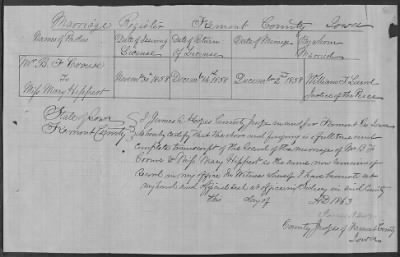 Marriage Register Fremont County Iowa
Names of Parties Date of Issuing License Date of Return of License Date of Marriage By whom Married
Mr. B. F. Croose
To
Miss Mary Hippert
Novem 30th 1858 Decem 24th 1858 December 2nd 1858 William F. Laird
Justice of the Peace
State of Iowa
Fremont County
I James L. Hodges County Judge in and for Fremont Co Iowa
do hereby certify that the above and foregoing is a full true and
complete transcript of the record of the marriage of Mr B. F.
& Miss Mary Hippert as the same now remains of
record in my office In Witness whereof I have hereunto set
my hand and official seal at office in Sidney in said County
this day of AD 1863
County Judge of Fremont County
Iowa